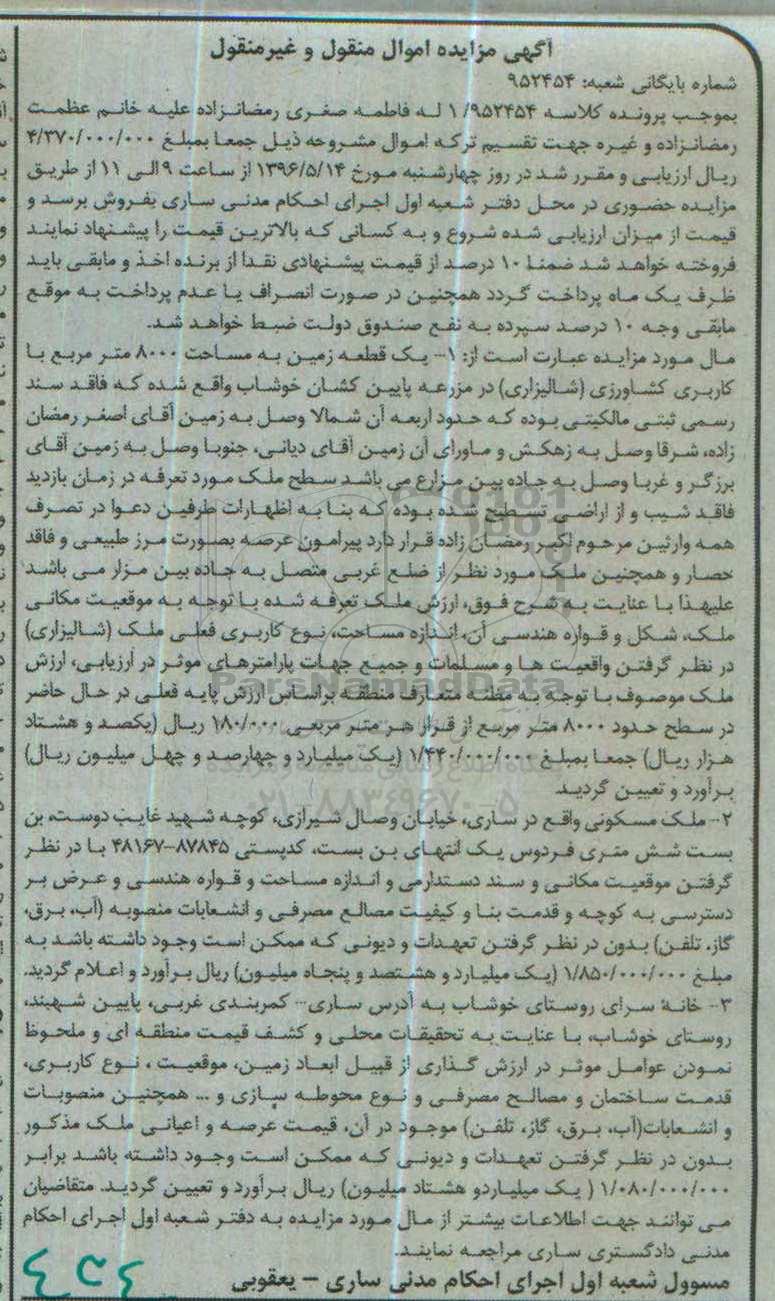 آگهی مزایده اموال منقول و غیرمنقول
شماره بایگانی شعبه: ۹۵۲۴۵۴
بموجب پرونده کلاسه ۱/۹۵۲۴۵۴ له فاطمه صغری رمضانزاده علیه خانم عظمت
رمضانزاده و غیره جهت تقسیم ترکه اموال مشروحه ذیل جمعا بمبلغ ۴/۳۷۰/۰۰۰/۰۰۰
ریال ارزیابی و مقرر شد در روز چهارشنبه مورخ ۱۳۹۶/۵/۱۴ از ساعت ۹ الی ۱۱ از طریق
مزایده حضوری در محل دفتر شعبه اول اجرای احکام مدنی ساری بفروش برسد و
قیمت از میزان ارزیابی شده شروع و به کسانی که بالاترین قیمت را پیشنهاد نمایند
فروخته خواهد شد ضمنا ۱۰ درصد از قیمت پیشنهادی نقدا از برنده اخذ و مابقی باید
ظرف یک ماه پرداخت گردد همچنین در صورت انصراف یا عدم پرداخت به موقع
مابقی وجه ۱۰ درصد سپرده به نفع صندوق دولت ضبط خواهد شد.
مال مورد مزایده عبارت است از: ۱- یک قطعه زمین به مساحت ۸۰۰۰ متر مربع با
کاربری کشاورزی (شالیزاری) در مزرعه پایین کشان خوشاب واقع شده که فاقد سند
رسمی ثبتی مالکیتی بوده که حدود اربعه آن شمالا وصل به زمین آقای اصغر رمضان
زاده، شرقا وصل به زهکش و ماورای آن زمین آقای دیانی، جنوبا وصل به زمین آقای
برزگر و غربا وصل به جاده بین مزارع می باشد سطح ملک مورد تعرفه در زمان بازدید
فاقد شیب و از اراضی تسطیح شده بوده که بنا به اظهارات طرفین دعوا در تصرف
همه وارثین مرحوم اکبر رمضان زاده قرار دارد پیرامون عرصه بصورت مرز طبیعی و فاقد
حصار و همچنین ملک مورد نظر از ضلع غربی متصل به جاده بین مزار می باشد
علیهذا با عنایت به شرح فوق، ارزش ملک تعرفه شده با توجه به موقعیت مکانی
ملک، شکل و قواره هندسی آن، اندازه مساحت، نوع کاربری فعلی ملک (شالیزاری)
در نظر گرفتن واقعیت ها و مسلمات و جمیع جهات پارامترهای موثر در ارزیابی، ارزش
ملک موصوف با توجه به مظنه متعارف منطقه براساس ارزش پایه فعلی در حال حاضر
در سطح حدود ۸۰۰۰ متر مربع از قرار هر متر مربعی ۱۸۰/۰۰۰ ریال (یکصد و هشتاد
هزار ریال) جمعا بمبلغ ۱/۴۴۰/۰۰۰/۰۰۰ (یک میلیارد و چهارصد و چهل میلیون ریال)
برآورد و تعیین گردید.
۲- ملک مسکونی واقع در ساری، خیابان وصال شیرازی، کوچه شهید غایب دوست، بن
بست شش متری فردوس یک انتهای بن بست، کدپستی ۸۷۸۴۵-۴۸۱۶۷ با در نظر
گرفتن موقعیت مکانی و سند دستدارمی و اندازه مساحت و قواره هندسی و عرض بر
دسترسی به کوچه و قدمت بنا و کیفیت مصالع مصرفی و انشعابات منصوبه (آب، برق،
گاز، تلفن) بدون در نظر گرفتن تعهدات و دیونی که ممکن است وجود داشته باشد به
مبلغ ۱/۸۵۰/۰۰۰/۰۰۰ (یک میلیارد و هشتصد و پنجاه میلیون) ریال برآورد و اعلام گردید.
۳- خانه سرای روستای خوشاب به آدرس ساری- کمربندی غربی، پایین شهبند،
روستای خوشاب، با عنایت به تحقیقات محلی و کشف قیمت منطقه ای و ملحوظ
نمودن عوامل موثر در ارزش گذاری از قبیل ابعاد زمین، موقعیت ، نوع کاربری،
قدمت ساختمان و مصالح مصرفی و نوع محوطه سازی و ... همچنین منصوبات
و انشعابات(آب، برق، گاز، تلفن) موجود در آن، قیمت عرصه و اعیانی ملک مذکور
بدون در نظر گرفتن تعهدات و دیونی که ممکن است وجود داشته باشد برابر
۱/۰۸۰/۰۰۰/۰۰۰ ( یک میلیاردو هشتاد میلیون) ریال برآورد و تعیین گردید. متقاضیان
می توانند جهت اطلاعات بیشتر از مال مورد مزایده به دفتر شعبه اول اجرای احکام
مدنی دادگستری ساری مراجعه نمایند.
مسوول شعبه اول اجرای احکام مدنی ساری – یعقوبی
ParsNamadData
۰۲۱-۸۸۳۴۹۶۷۰-۵